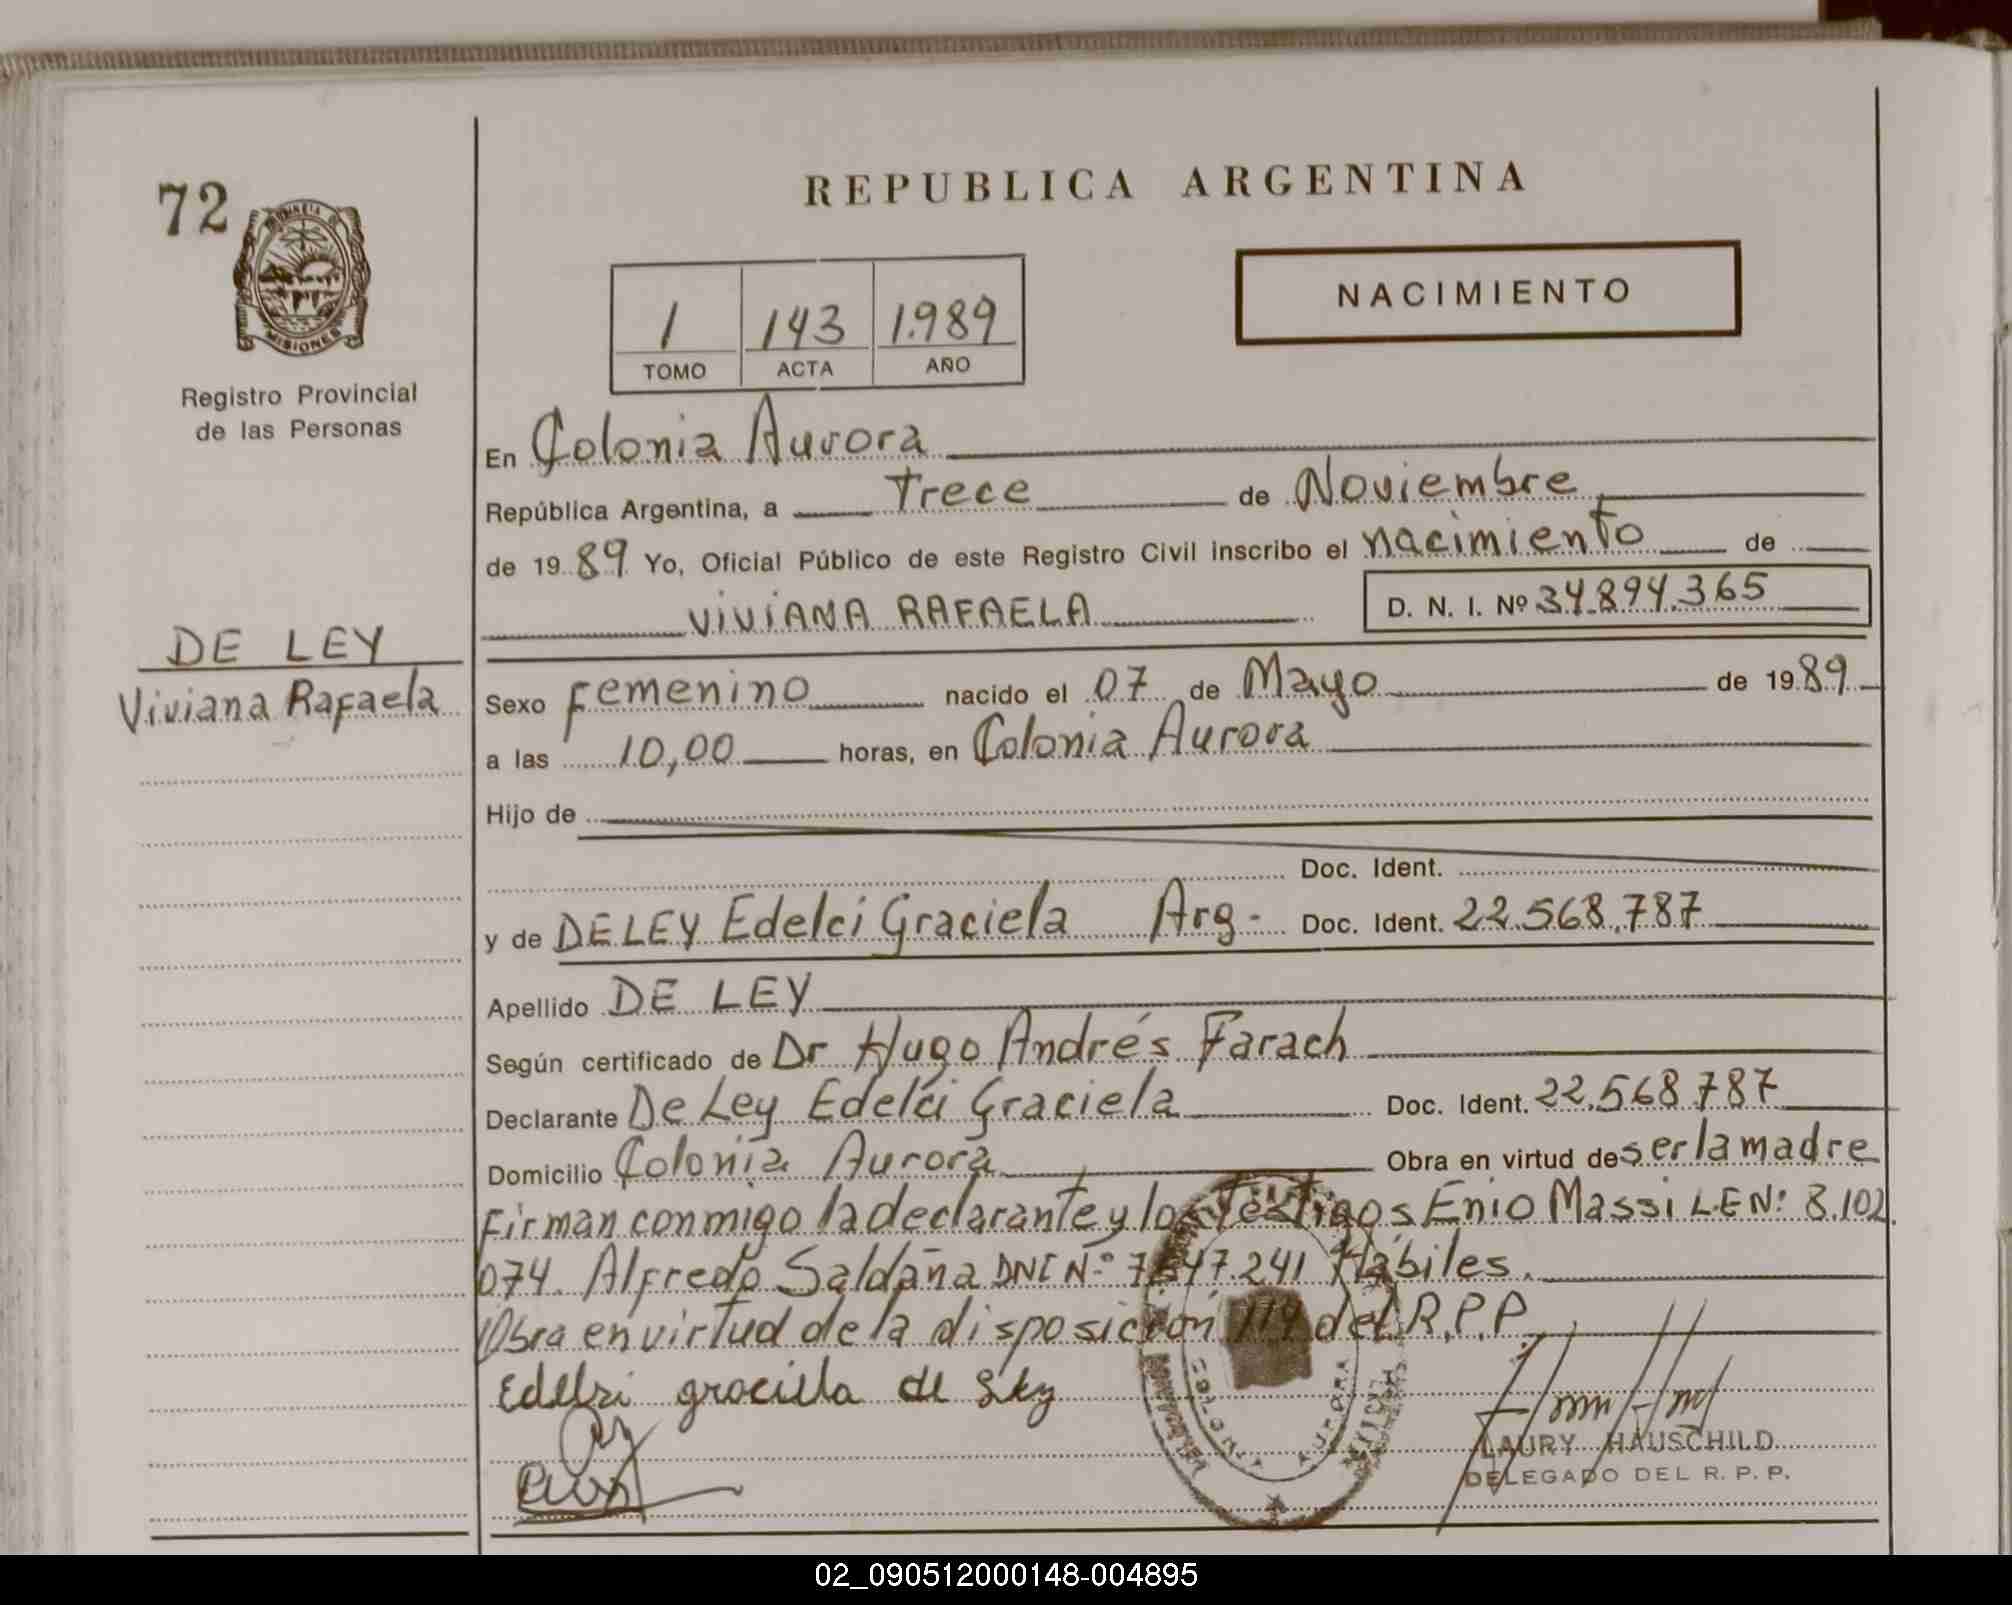 72
REPUBLICA ARGENTINA
NACIMIENTO
1 143 1.989
TOMO ACTA AÑO
MISIONES
Registro Provincial
de las Personas
En Colonia Aurora
República Argentina, a Trece de Noviembre
de 19 89 Yo, Oficial Público de este Registro Civil inscribo el nacimiento de
VIVIANA RAFAELA D. N. I. Nº 34.894.365
DE LEY
Viviana Rafaela
Sexo Femenino nacido el 07 de Mayo de 19 89
a las 10,00 horas, en Colonia Aurora
Hijo de
Doc. Ident.
y de DE LEY Edelci Graciela Arg. Doc. Ident. 22.568.787
Apellido DE LEY
Según certificado de Dr Hugo Andrés Farach
Declarante De Ley Edelci Graciela Doc. Ident. 22.568.787
Domicilio Colonia Aurora Obra en virtud de ser la madre
Firman conmigo la declarante y los Testigos Enio Massi L.E Nº 8.102.
074. Alfredo Saldaña DNI Nº 241 Hábiles.
Obra en virtud de la disposición 114 del R.P.P.
Edelsi graciela de Ley
COLONIA AURORA
LAURY HAUSCHILD
DELEGADO DEL R. P. P.
02_090512000148-004895